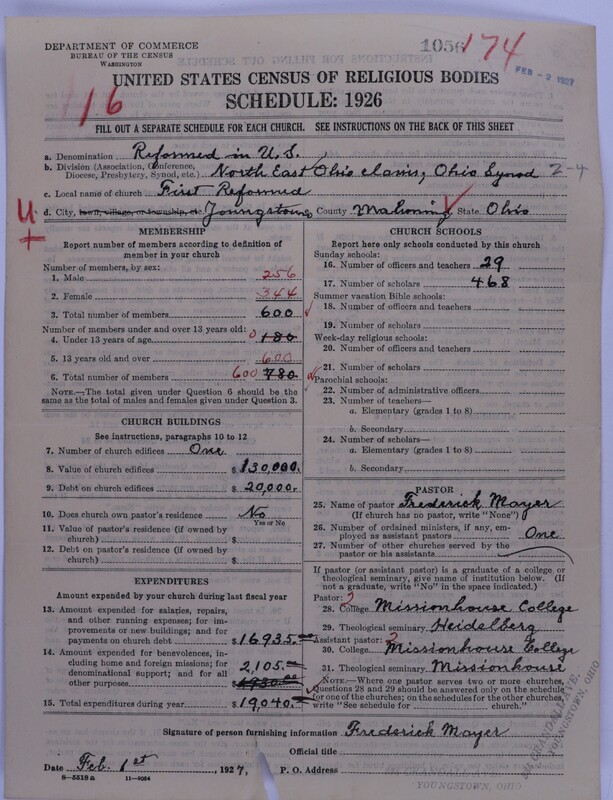 DEPARTMENT OF COMMERCE
BUREAU OF THE CENSUS
WASHINGTON
1056
174
FEB -2 1927
116
UNITED STATES CENSUS OF RELIGIOUS BODIES
SCHEDULE: 1926
FILL OUT A SEPARATE SCHEDULE FOR EACH CHURCH. SEE INSTRUCTIONS ON THE BACK OF THIS SHEET
a. Denomination Reformed in U.S.
b. Division (Association, Conference,
Diocese, Presbytery, Synod, etc.) North East Ohio classis, Ohio Synod 2-4
c. Local name of church First Reformed
d. City, town, village, or township, etc. Youngstown County Mahoning State Ohio
U.
+
MEMBERSHIP
Report number of members according to definition of
member in your church
Number of members, by sex:
1. Male 256
2. Female 344
3. Total number of members 600
Number of members under and over 13 years old:
4. Under 13 years of age 0 180
5. 13 years old and over 600
6. Total number of members 600 780
NOTE.—The total given under Question 6 should be the
same as the total of males and females given under Question 3.
CHURCH BUILDINGS
See instructions, paragraphs 10 to 12
7. Number of church edifices One
8. Value of church edifices $130,000.
9. Debt on church edifices $20,000.
10. Does church own pastor's residence No
Yes or No
11. Value of pastor's residence (if owned by
church) $
12. Debt on pastor's residence (if owned by
church) $
EXPENDITURES
Amount expended by your church during last fiscal year
13. Amount expended for salaries, repairs,
and other running expenses; for im-
provements or new buildings; and for
payments on church debt $16935.00
14. Amount expended for benevolences,
including home and foreign missions; for
denominational support; and for all
other purposes 2,105.00
$1930.00
15. Total expenditures during year $19,040.00
CHURCH SCHOOLS
Report here only schools conducted by this church
Sunday schools:
16. Number of officers and teachers 29
17. Number of scholars 468
Summer vacation Bible schools:
18. Number of officers and teachers
19. Number of scholars
Week-day religious schools:
20. Number of officers and teachers
21. Number of scholars
Parochial schools:
22. Number of administrative officers
23. Number of teachers—
a. Elementary (grades 1 to 8)
b. Secondary
24. Number of scholars—
a. Elementary (grades 1 to 8)
b. Secondary
PASTOR
25. Name of pastor Frederick Mayer
(If church has no pastor, write "None")
26. Number of ordained ministers, if any, em-
ployed as assistant pastors One
27. Number of other churches served by the
pastor or his assistants
If pastor (or assistant pastor) is a graduate of a college or
theological seminary, give name of institution below. (If
not a graduate, write "No" in the space indicated.)
Pastor: 2
28. College Missionhouse College
29. Theological seminary Heidelberg
Assistant pastor: 2
30. College Missionhouse College
31. Theological seminary Missionhouse
NOTE.—Where one pastor serves two or more churches,
Questions 28 and 29 should be answered only on the schedule
for one of the churches; on the schedules for the other churches,
write "See schedule for church."
Signature of person furnishing information Frederick Mayer
Official title
Date Feb. 1st 1927, P. O. Address
YOUNGSTOWN, OHIO
YOUNGSTOWN, OHIO
8-5518a 11-9064